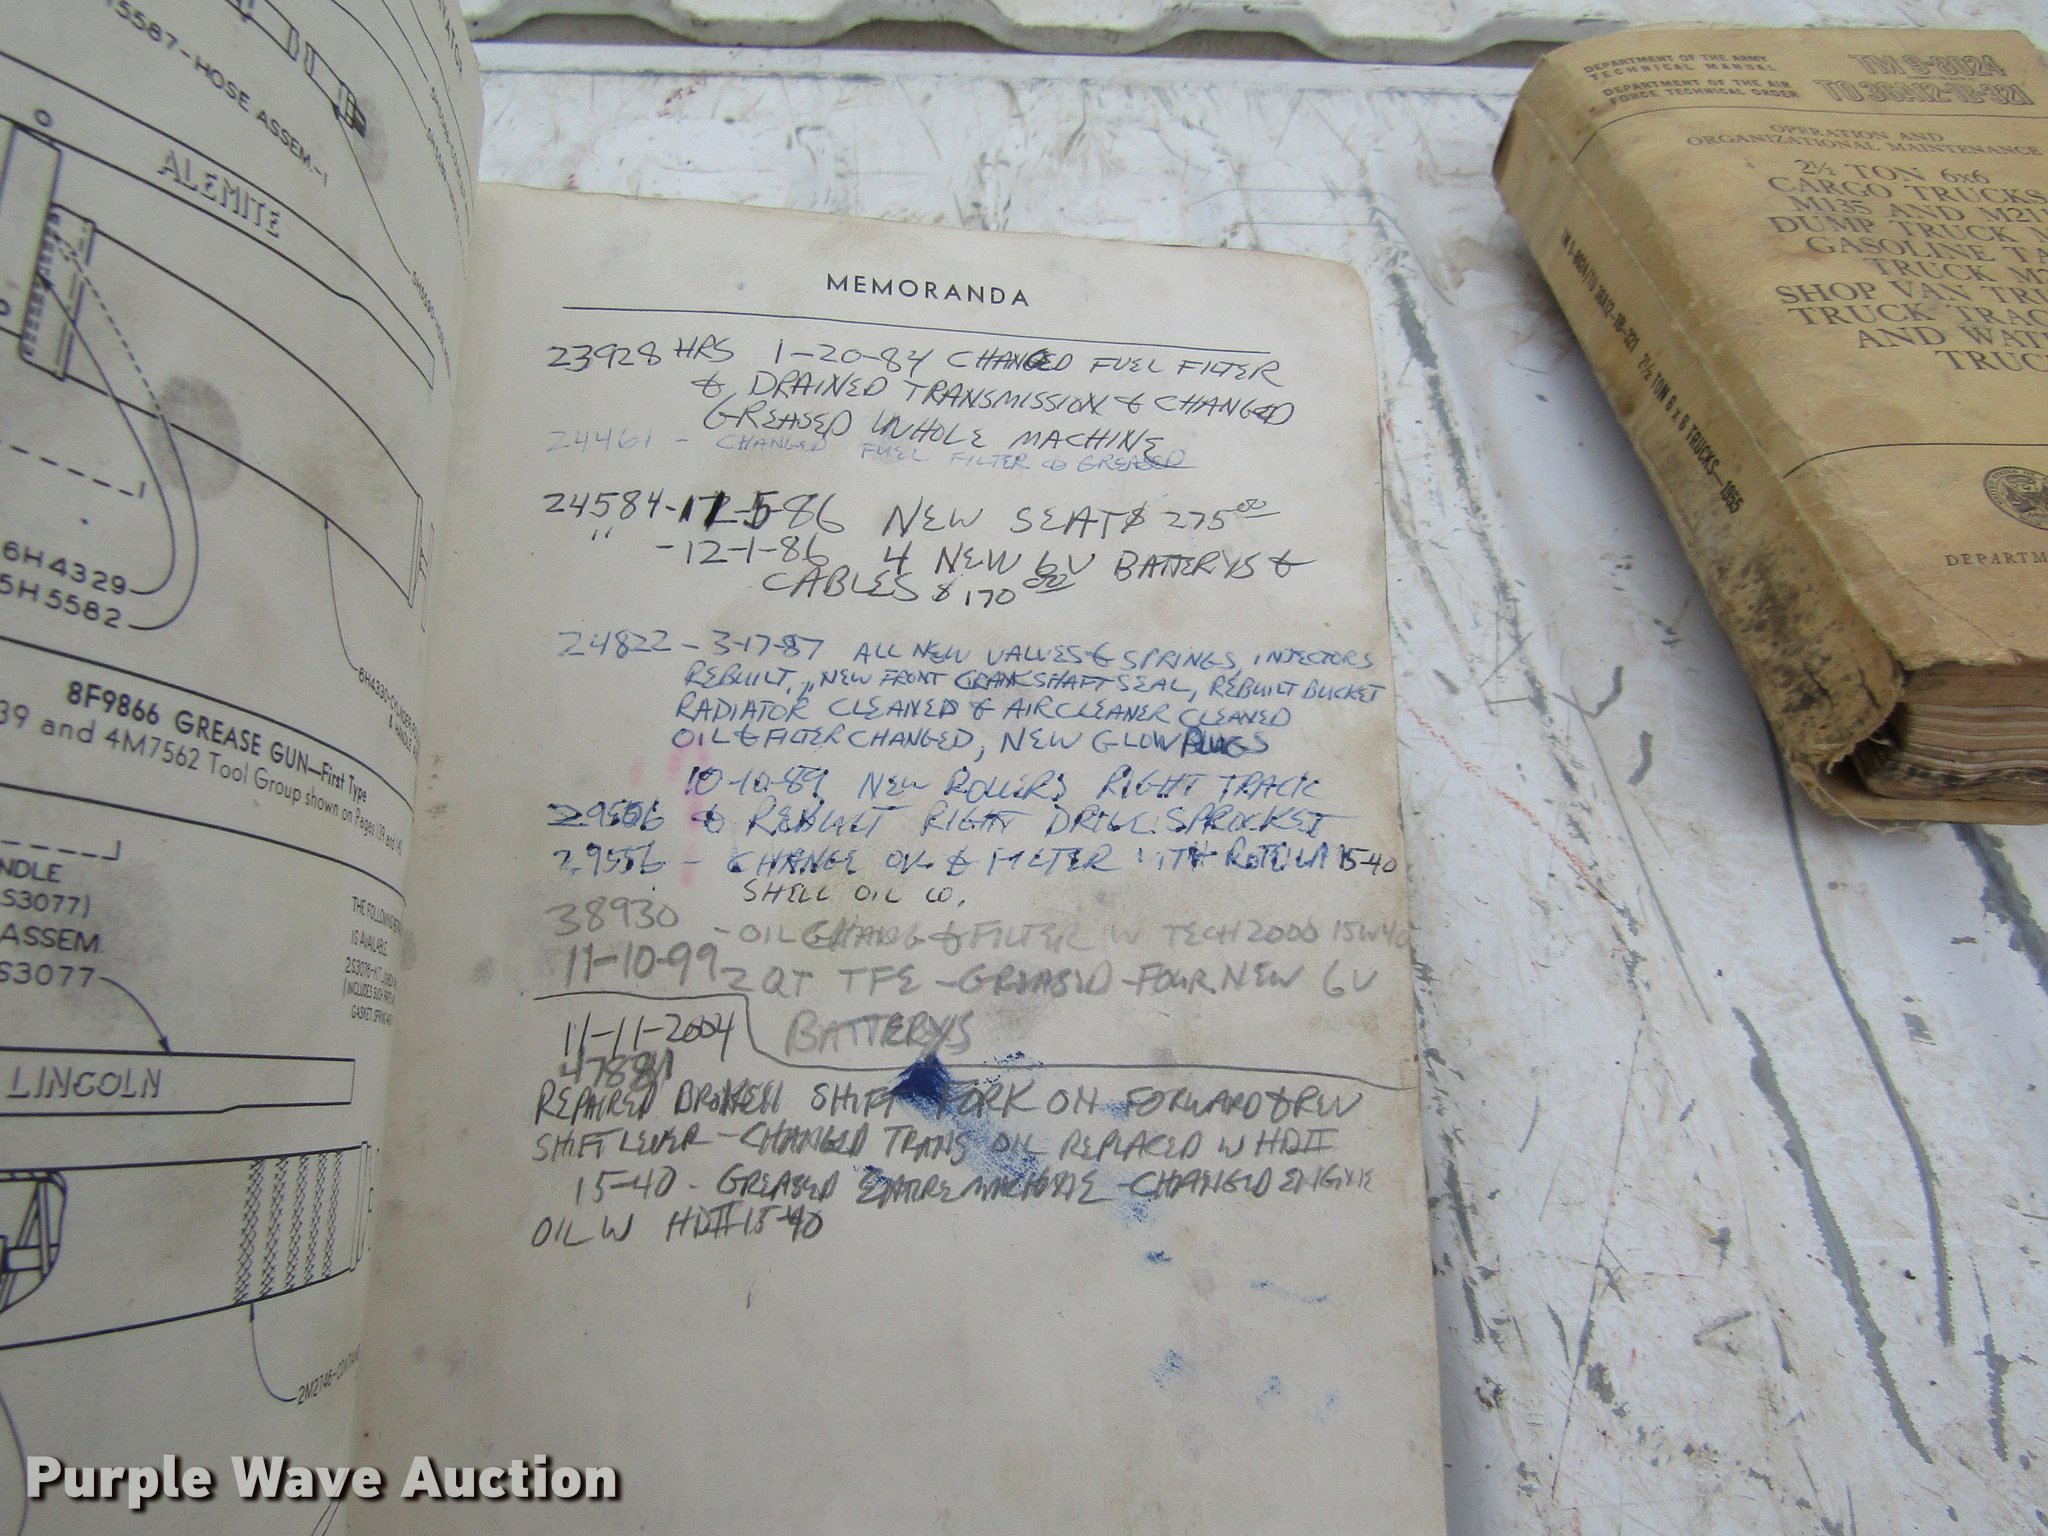 15587-HOSE ASSEM-1
ALEMITE
6H4329
5H5582
8F9866 GREASE GUN—First Type
39 and 4M7562 Tool Group shown on Pages 139 and 141
NDLE
S3077)
ASSEM
S3077
LINCOLN
MEMORANDA
23928 HRS 1-20-84 CHANGED FUEL FILTER
& DRAINED TRANSMISSION & CHANGED
GREASED WHOLE MACHINE
24461 - CHANGED FUEL FILTER & GREASED
24584-12-5-86 NEW SEAT $ 275 00
" -12-1-86 4 NEW 6V BATTERYS &
CABLES $ 170 00
24822 - 3-17-87 ALL NEW VALVES & SPRINGS, INJECTORS
REBUILT, NEW FRONT CRANKSHAFT SEAL, REBUILT BUCKET
RADIATOR CLEANED & AIR CLEANER CLEANED
OIL & FILTER CHANGED, NEW GLOW PLUGS
10-10-89 NEW ROLLERS RIGHT TRACK
29506 & REBUILT RIGHT DRIVE SPROCKET
29556 - CHANGE OIL & FILTER WITH ROTELLA 15-40
SHELL OIL CO.
38930 - OIL CHANG & FILTER W TECH2000 15W40
11-10-99 2 QT TFE - GREASED - FOUR NEW 6V
BATTERYS
11-11-2004
REPAIRED BROKEN SHIFT FORK ON FORWARD & REV
SHIFT LEVER - CHANGED TRANS OIL REPLACED W HDII
15-40 - GREASED ENTIRE MACHINE - CHANGED ENGINE
OIL W HDII 15-40
DEPARTMENT OF THE ARMY
TECHNICAL MANUAL
DEPARTMENT OF THE AIR
FORCE TECHNICAL ORDER
TM 9-8024
TO 36A12-1B-321
OPERATION AND
ORGANIZATIONAL MAINTENANCE
2½ TON 6x6
CARGO TRUCKS
M135 AND M211
DUMP TRUCK M
GASOLINE TA
TRUCK M2
SHOP VAN TRU
TRUCK TRAC
AND WATE
TRUC
DEPARTM
TM 9-8024/TO 36A12-1B-321 2½ TON 6 x 6 TRUCKS—1955
2M2746-CONTAI
Purple Wave Auction